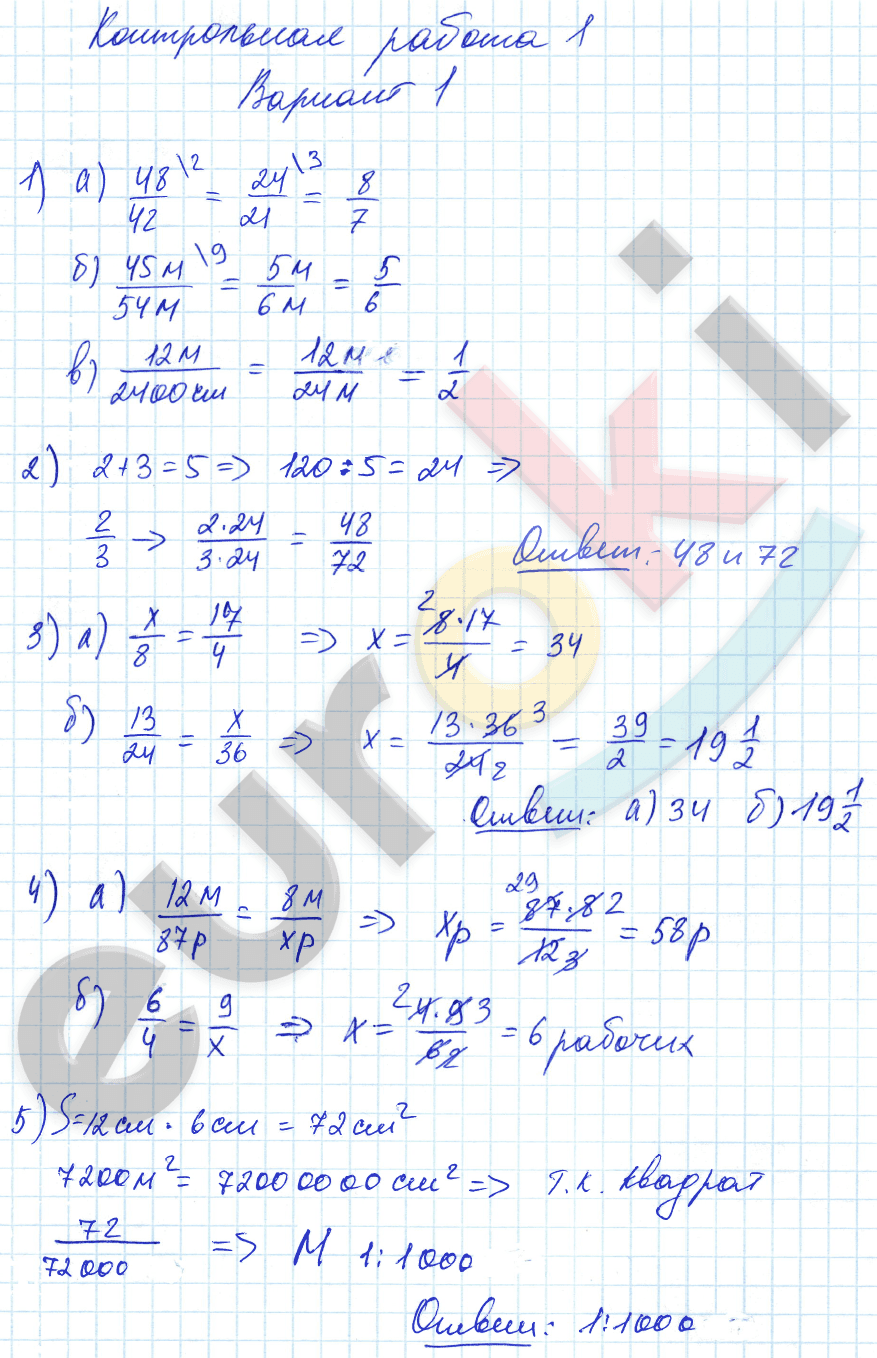 Контрольная работа 1
Вариант 1
1) а) 48/42 \2 = 24/21 \3 = 8/7
б) 45м/54м \9 = 5м/6м = 5/6
в) 12м/2400см = 12м/24м = 1/2
2) 2+3=5 => 120:5=24 =>
2/3 → 2·24/3·24 = 48/72 Ответ: 48 и 72
3) а) x/8 = 17/4 => x = 2 8·17/4 = 34
б) 13/24 = x/36 => x = 13·36 3/24 2 = 39/2 = 19 1/2
Ответ: а) 34 б) 19 1/2
4) а) 12м/87р = 8м/xр => xр = 29 87·8 2/12 3 = 58р
б) 6/4 = 9/x => x = 2 4·9 3/6 2 = 6 рабочих
5) S=12см·6см = 72см²
7200м² = 72000000см² => т.к. квадрат
72/72000 => М 1:1000
Ответ: 1:1000
euroki